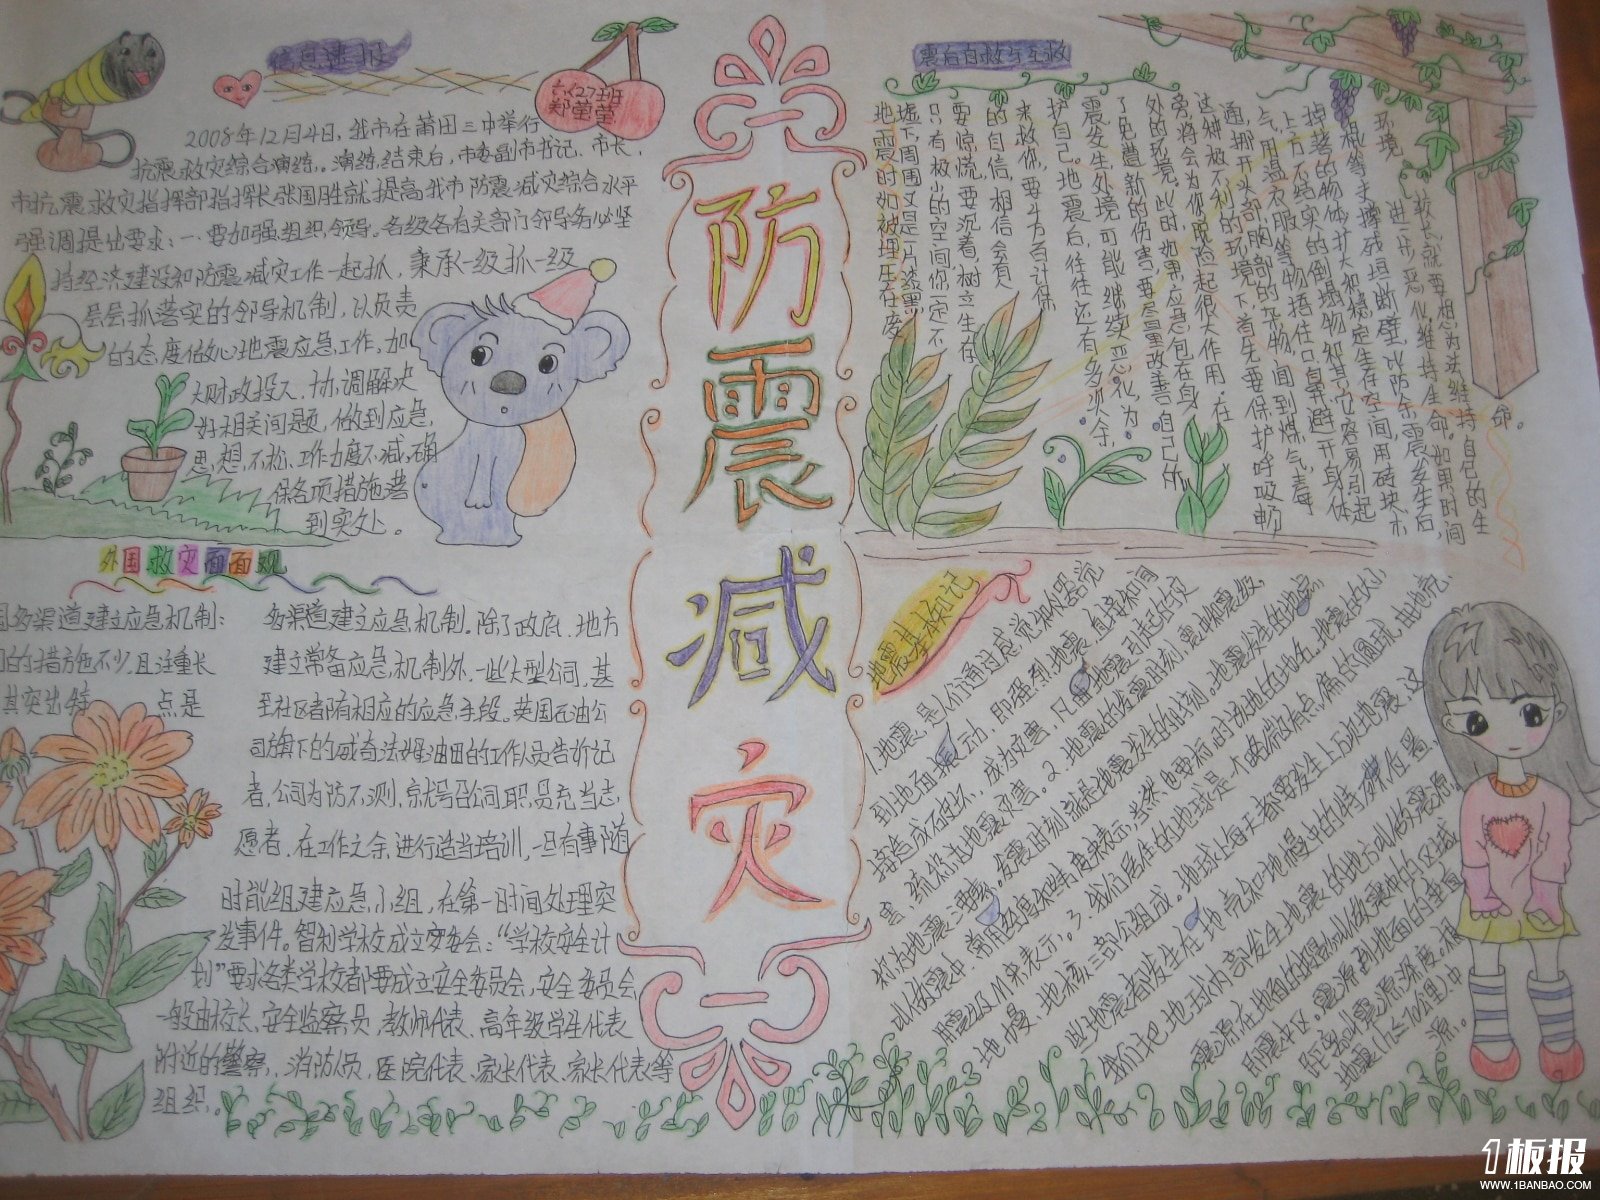 信息速报
六(27)班
郑莹莹
2008年12月4日,我市在莆田三中举行
抗震救灾综合演练,。演练结束后,市委副市书记、市长,
市抗震救灾指挥部指挥长张国胜就提高我市防震减灾综合水平
强调提出要求:一、要加强组织领导。各级各有关部门领导务必坚
持经济建设和防震减灾工作一起抓,秉承一级抓一级
层层抓落实的领导机制,以负责
的态度做心地震应急工作,加
大财政投入,协调解决
好相关问题,做到应急,
思想不松、工作力度不减,确
保各项措施落
到实处。
外国救灾面面观
多渠道建立应急机制:
的措施不少,且注重长
其突出特 点是
多渠道建立应急机制。除了政府、地方
建立常备应急机制外,一些大型公司,甚
至社区都有相应的应急手段。英国石油公
司旗下的威奇法姆油田的工作人员告诉记
者,公司为防不测,就号召公司职员充当志
愿者,在工作之余进行适当培训,一旦有事随
时能组建应急小组,在第一时间处理突
发事件。智利学校成立安委会:“学校安全计
划”要求各类学校都要成立安全委员会,安全委员会
一般由校长、安全监察员、教师代表、高年级学生代表
附近的警察、消防员,医院代表、家长代表、家长代表等
组织。
防震减灾
震后自救与互救
地震时如被埋压在废
墟下,周围又是一片漆黑,
只有极小的空间,你一定不
要惊慌,要沉着,树立生存
的自信,相信会有人
来救你,要千方百计保
护自己。地震后,往往还有多次余
震发生,处境可能继续恶化,为
了免遭新的伤害,要尽量改善自己所
处的环境。此时,如果应急包在身
旁,将会为你脱险起很大作用。在
这种极不利的环境下,首先要保护呼吸畅
通,挪开头部、胸部的杂物,闻到煤气、毒
气,用湿衣服等物捂住口、鼻;避开身体
上方不结实的倒塌物和其它容易引起
掉落的物体;扩大和稳定生存空间,用砖块、木
棍等支撑残垣断壁,以防余震发生后,
环境进一步恶化。维持生命。如果时间
较长,就要想办法维持自己的生
命。
地震基本知记
1.地震,是人们通过感觉和仪器觉
到地面振动,即强烈地震,直接和间
接造成破坏,成为灾害,凡由地震引起的灾
害,统称为地震灾害。2.地震的发震时刻、震中和震级,
称为地震三要素。发震时刻就是地震发生的时刻。地震发生的地点
以所在震中,常用经度和纬度来表示,当然,也要标明所在地的地名,地震的大小
用震级M来表示。3.我们居住的地球是一个两极有点偏的圆球,由地壳、
地幔、地核三部分组成。地球上每天都要发生上万次地震,这
些地震都发生在地壳和地幔中的特殊位置,
我们把地球内部发生地震的地方叫做震源。
震源在地面的投影叫做震中的区域
即震中区。震源到地面的垂直
距离叫震源深度。
源。
1板报
WWW.1BANBAO.COM